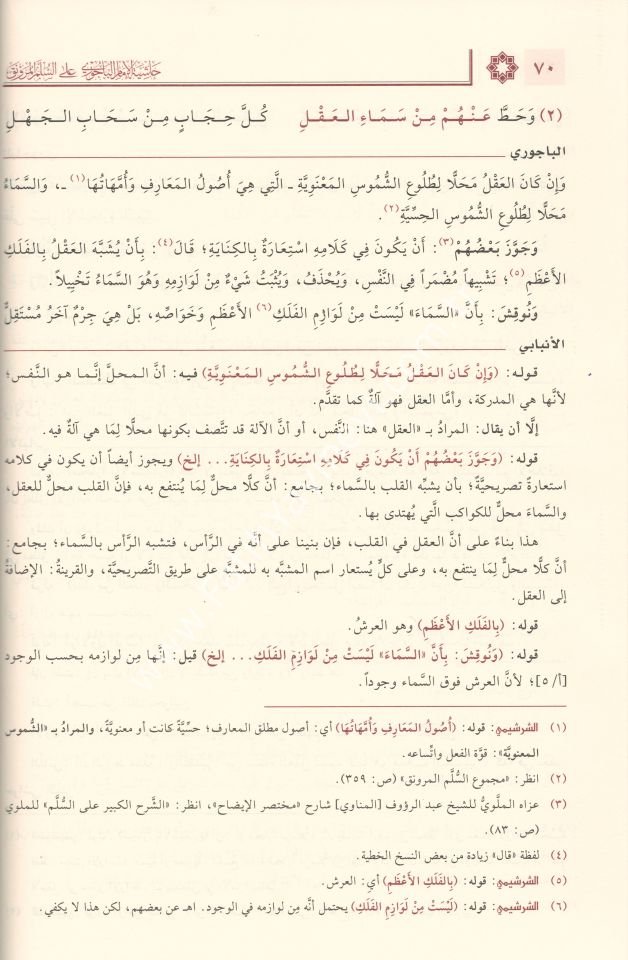 ٧٠
حاشية الإمام الباجوري على السلم المرونق
(٢) وَحَطَّ عَنْهُمْ مِنْ سَمَاءِ العَقْلِ كُلَّ حِجَابٍ مِنْ سَحَابِ الجَهْلِ
الباجوري
وَإِنْ كَانَ العَقْلُ مَحَلًّا لِطُلُوعِ الشُّمُوسِ المَعْنَوِيَّةِ ـ الَّتِي هِيَ أُصُولُ المَعَارِفِ وَأُمَّهَاتُهَا(١) ـ، وَالسَّمَاءُ
مَحَلًّا لِطُلُوعِ الشُّمُوسِ الحِسِّيَّةِ(٢).
وَجَوَّزَ بَعْضُهُمْ(٣): أَنْ يَكُونَ فِي كَلَامِهِ اسْتِعَارَةٌ بِالكِنَايَةِ؛ قَالَ(٤): بِأَنْ يُشَبَّهَ العَقْلُ بِالفَلَكِ
الأَعْظَمِ(٥)؛ تَشْبِيهاً مُضْمَراً فِي النَّفْسِ، وَيُحْذَفُ، وَيُثْبَتُ شَيْءٌ مِنْ لَوَازِمِهِ وَهُوَ السَّمَاءُ تَخْيِيلاً.
وَنُوقِشَ: بِأَنَّ «السَّمَاءَ» لَيْسَتْ مِنْ لَوَازِمِ الفَلَكِ(٦) الأَعْظَمِ وَخَوَاصِّهِ، بَلْ هِيَ جِرْمٌ آخَرُ مُسْتَقِلٌّ
الأنبابي
قوله: (وَإِنْ كَانَ العَقْلُ مَحَلًّا لِطُلُوعِ الشُّمُوسِ المَعْنَوِيَّةِ) فيه: أنَّ المحلَّ إنَّما هو النَّفس؛
لأنَّها هي المدركة، وأمَّا العقل فهر آلةٌ كما تقدَّم.
إلَّا أن يقال: المرادُ بـ «العقل» هنا: النَّفس، أو أنَّ الآلة قد تتَّصف بكونها محلًّا لِمَا هي آلةٌ فيه.
قوله: (وَجَوَّزَ بَعْضُهُمْ أَنْ يَكُونَ فِي كَلَامِهِ اسْتِعَارَةٌ بِالكِنَايَةِ... إلخ) ويجوز أيضاً أن يكون في كلامه
استعارةٌ تصريحيَّةٌ؛ بأن يشبَّه القلب بالسَّماء؛ بجامع: أنَّ كلًّا محلٌّ لِمَا يُنتفع به، فإنَّ القلب محلٌّ للعقل،
والسَّماءَ محلٌّ للكواكب الَّتي يُهتدى بها.
هذا بناءً على أنَّ العقل في القلب، فإن بنينا على أنَّه في الرَّأس، فتشبه الرَّأس بالسَّماء؛ بجامع:
أنَّ كلًّا محلٌّ لِمَا ينتفع به، وعلى كلٍّ يُستعار اسم المشبَّه به للمشبَّه على طريق التَّصريحيَّة، والقرينةُ: الإضافةُ
إلى العقل.
قوله: (بِالفَلَكِ الأَعْظَمِ) وهو العرشُ.
قوله: (وَنُوقِشَ: بِأَنَّ «السَّمَاءَ» لَيْسَتْ مِنْ لَوَازِمِ الفَلَكِ... إلخ) قيل: إنَّها مِن لوازمه بحسب الوجود
[أ/٥]؛ لأنَّ العرش فوق السَّماء وجوداً.
(١) الشرشيمي: قوله: (أُصُولُ المَعَارِفِ وَأُمَّهَاتُهَا) أي: أصول مطلق المعارف؛ حسِّيَّةً كانت أو معنويَّةً، والمرادُ بـ «الشُّموس
المعنويَّة»: قوَّة الفعل واتِّساعه.
(٢) انظر: «مجموع السُّلَّم المرونق» (ص: ٣٥٩).
(٣) عزاه الملَّويُّ للشيخ عبد الرؤوف [المناوي] شارح «مختصر الإيضاح»، انظر: «الشَّرح الكبير على السُّلَّم» للملوي
(ص: ٨٣).
(٤) لفظة «قال» زيادة من بعض النسخ الخطية.
(٥) الشرشيمي: قوله: (بِالفَلَكِ الأَعْظَمِ) أي: العرش.
(٦) الشرشيمي: قوله: (لَيْسَتْ مِنْ لَوَازِمِ الفَلَكِ) يحتمل أنَّه مِن لوازمه في الوجود. اهـ عن بعضهم، لكن هذا لا يكفي.